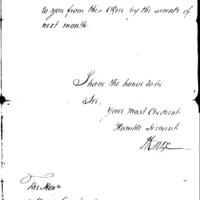 to you from this Office by the seventh of
next month.
I have the honor to be
Sir,
Your most Obedient
Humble Servant
HKnox
The Hon